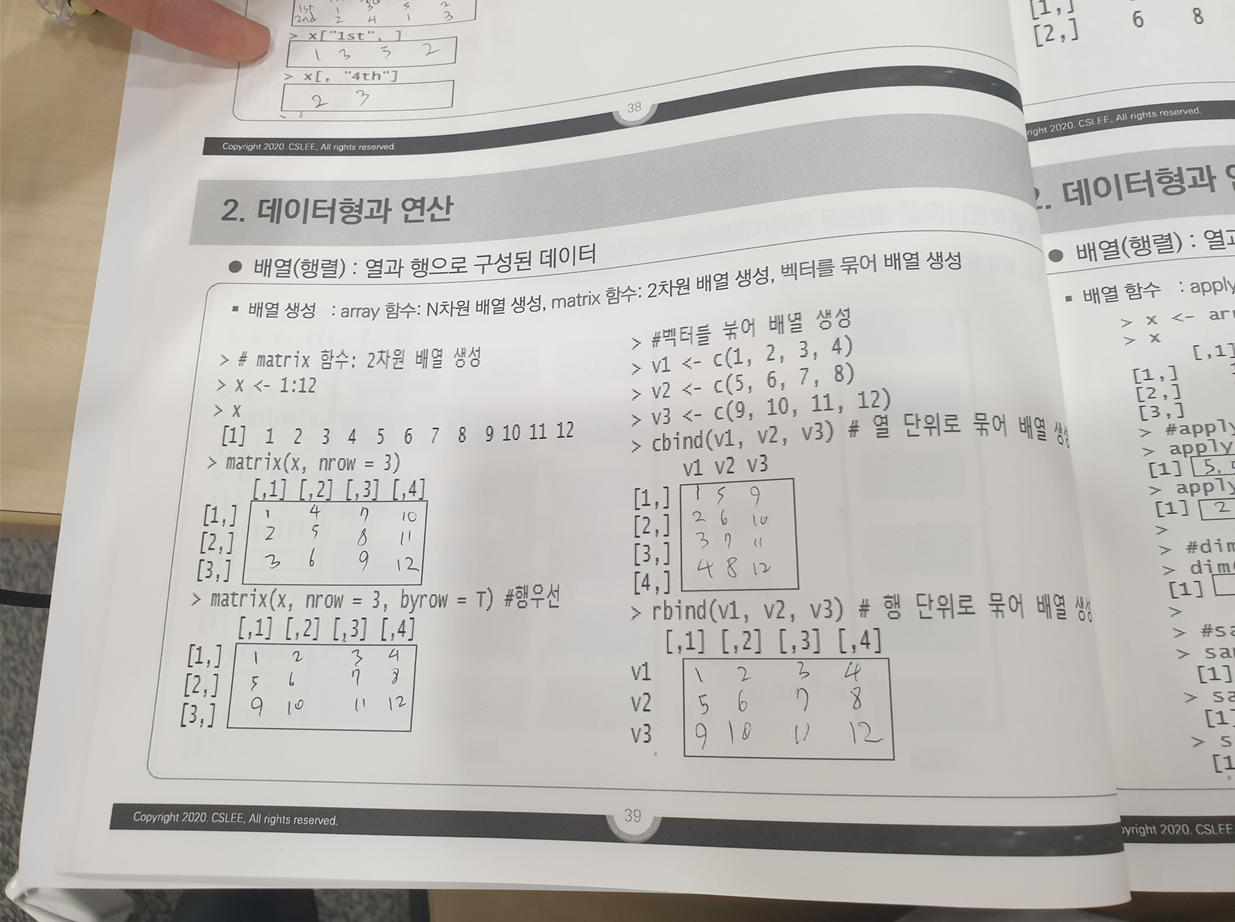 1st 1 3 5 2
2nd 2 4 1 3
> x["1st", ]
1 3 5 2
> x[, "4th"]
2 3
38
Copyright 2020. CSLEE, All rights reserved.
2. 데이터형과 연산
● 배열(행렬) : 열과 행으로 구성된 데이터
▪ 배열 생성 : array 함수: N차원 배열 생성, matrix 함수: 2차원 배열 생성, 벡터를 묶어 배열 생성
> # matrix 함수: 2차원 배열 생성
> x <- 1:12
> x
[1] 1 2 3 4 5 6 7 8 9 10 11 12
> matrix(x, nrow = 3)
[,1] [,2] [,3] [,4]
[1,] 1 4 7 10
[2,] 2 5 8 11
[3,] 3 6 9 12
> matrix(x, nrow = 3, byrow = T) #행우선
[,1] [,2] [,3] [,4]
[1,] 1 2 3 4
[2,] 5 6 7 8
[3,] 9 10 11 12
> #벡터를 묶어 배열 생성
> v1 <- c(1, 2, 3, 4)
> v2 <- c(5, 6, 7, 8)
> v3 <- c(9, 10, 11, 12)
> cbind(v1, v2, v3) # 열 단위로 묶어 배열 생성
v1 v2 v3
[1,] 1 5 9
[2,] 2 6 10
[3,] 3 7 11
[4,] 4 8 12
> rbind(v1, v2, v3) # 행 단위로 묶어 배열 생성
[,1] [,2] [,3] [,4]
v1 1 2 3 4
v2 5 6 7 8
v3 9 10 11 12
Copyright 2020. CSLEE, All rights reserved.
39
[1,]
[2,] 6 8
right 2020. CSLEE, All rights reserved.
2. 데이터형과
● 배열(행렬) : 열과
▪ 배열 함수 : apply
> x <- arr
> x
[,1]
[1,]
[2,]
[3,]
> #apply
> apply
[1] 5,
> apply
[1] 2
>
> #dim
> dim
[1]
>
> #sa
> sa
[1]
> sa
[1]
> s
[1
yright 2020. CSLEE